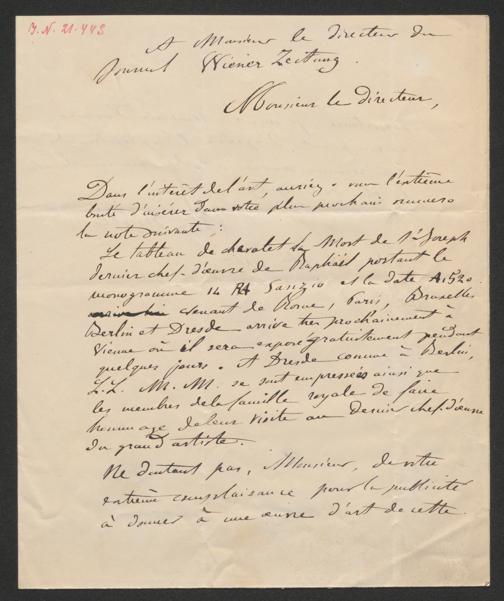 J.N. 21.443
A Monsieur le directeur du
Journal Wiener Zeitung.
Monsieur le directeur,
Dans l'intérêt de l'art, auriez-vous l'extrême
bonté d'insérer dans votre plus prochain numero
la note suivante:
Le tableau de chevalet la Mort de St Joseph
dernier chef-d'œuvre de Raphaël portant le
monogramme 14 RA Sanzio et la date A1520.
venant de Rome, Paris, Bruxelles
Berlin et Dresde arrive très prochainement à
Vienne où il sera exposé gratuitement pendant
quelques jours. A Dresde comme à Berlin,
L.L. M.M. se sont empressées ainsi que
les membres de la famille royale de faire
hommage de leur visite au dernier chef-d'œuvre
du grand artiste.
Ne doutant pas, Monsieur, de votre
extrême complaisance pour la publicité
à donner à une œuvre d'art de cette